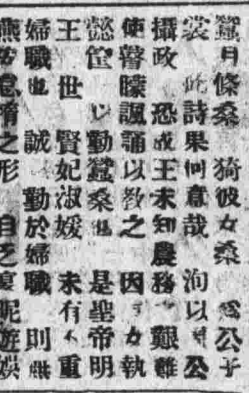 蠶月條桑 猗彼女桑 爲公子
裳 此詩果何意哉 洵以 公
攝政 恐成王未知農務 艱難
使瞽矇諷誦以敎之 因 女執
懿筐 以勤蠶桑也 是聖帝明
王 世 賢妃淑媛 未有不重
婦職也 誠 勤於婦職 則無
燕安怠惰之形 自乏褻昵遊娛